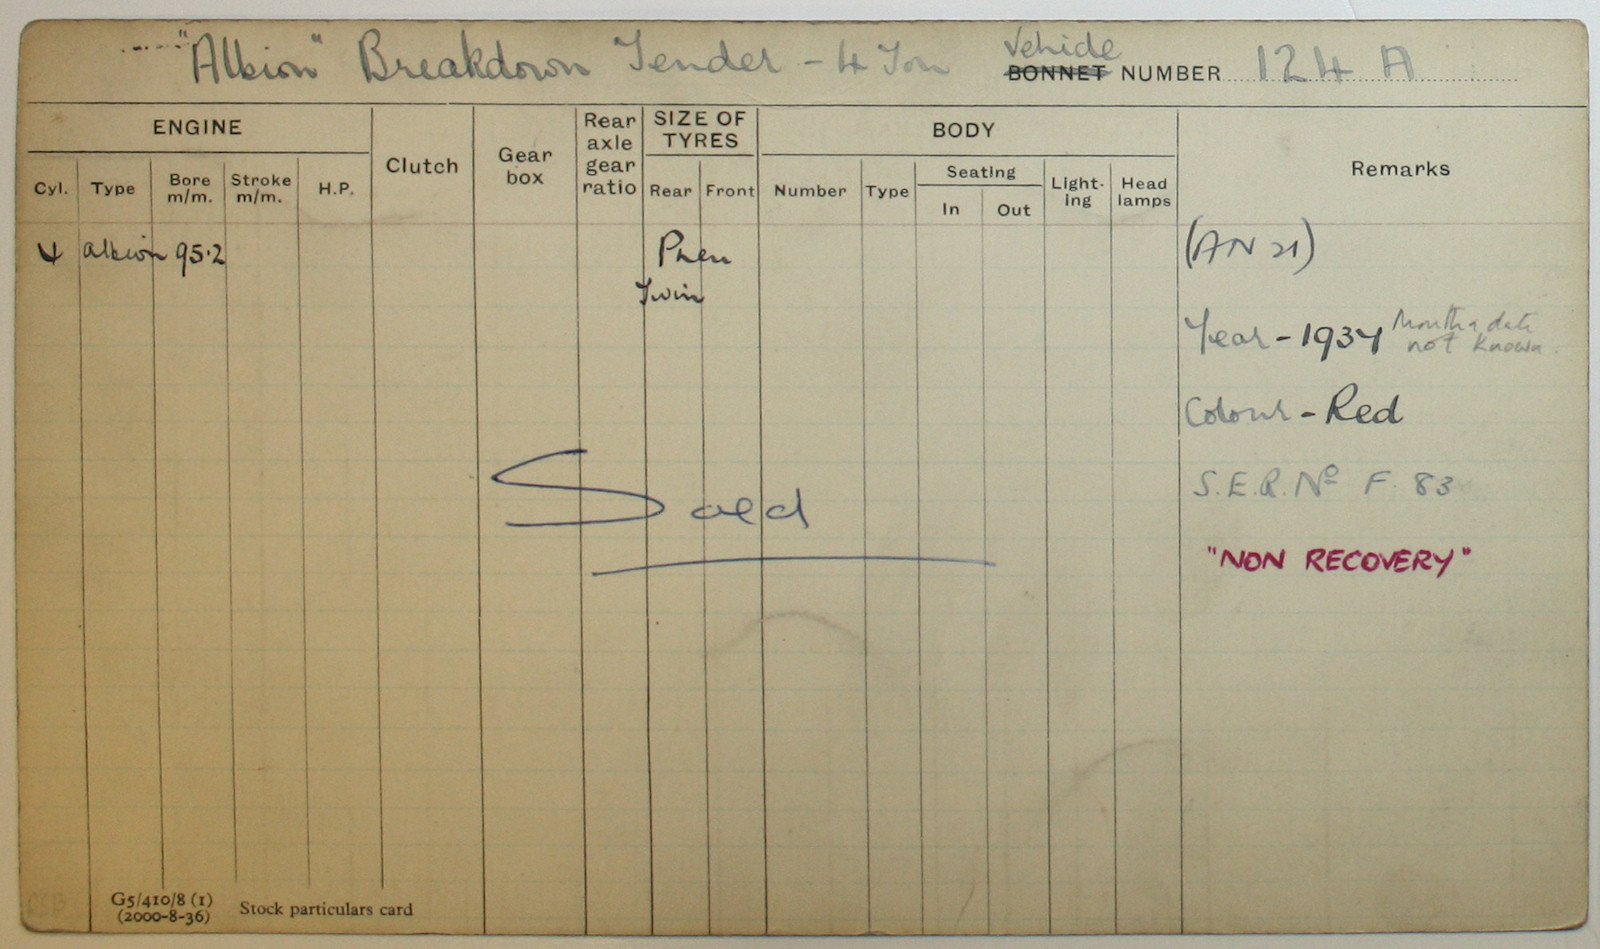 "Albion" Breakdown Tender - 4 Ton Vehicle BONNET NUMBER 124 A
ENGINE Clutch Gear box Rear axle gear ratio SIZE OF TYRES BODY Remarks
Cyl. Type Bore m/m. Stroke m/m. H.P. Rear Front Number Type Seating In Out Light-ing Head lamps
4 Albion 95.2 Pneu (AN 21)
Twin
Year - 1934 Month & date
not known.
Colour - Red
S.E.R. No F. 83
Sold
"NON RECOVERY"
G5/410/8 (1)
(2000-8-36) Stock particulars card